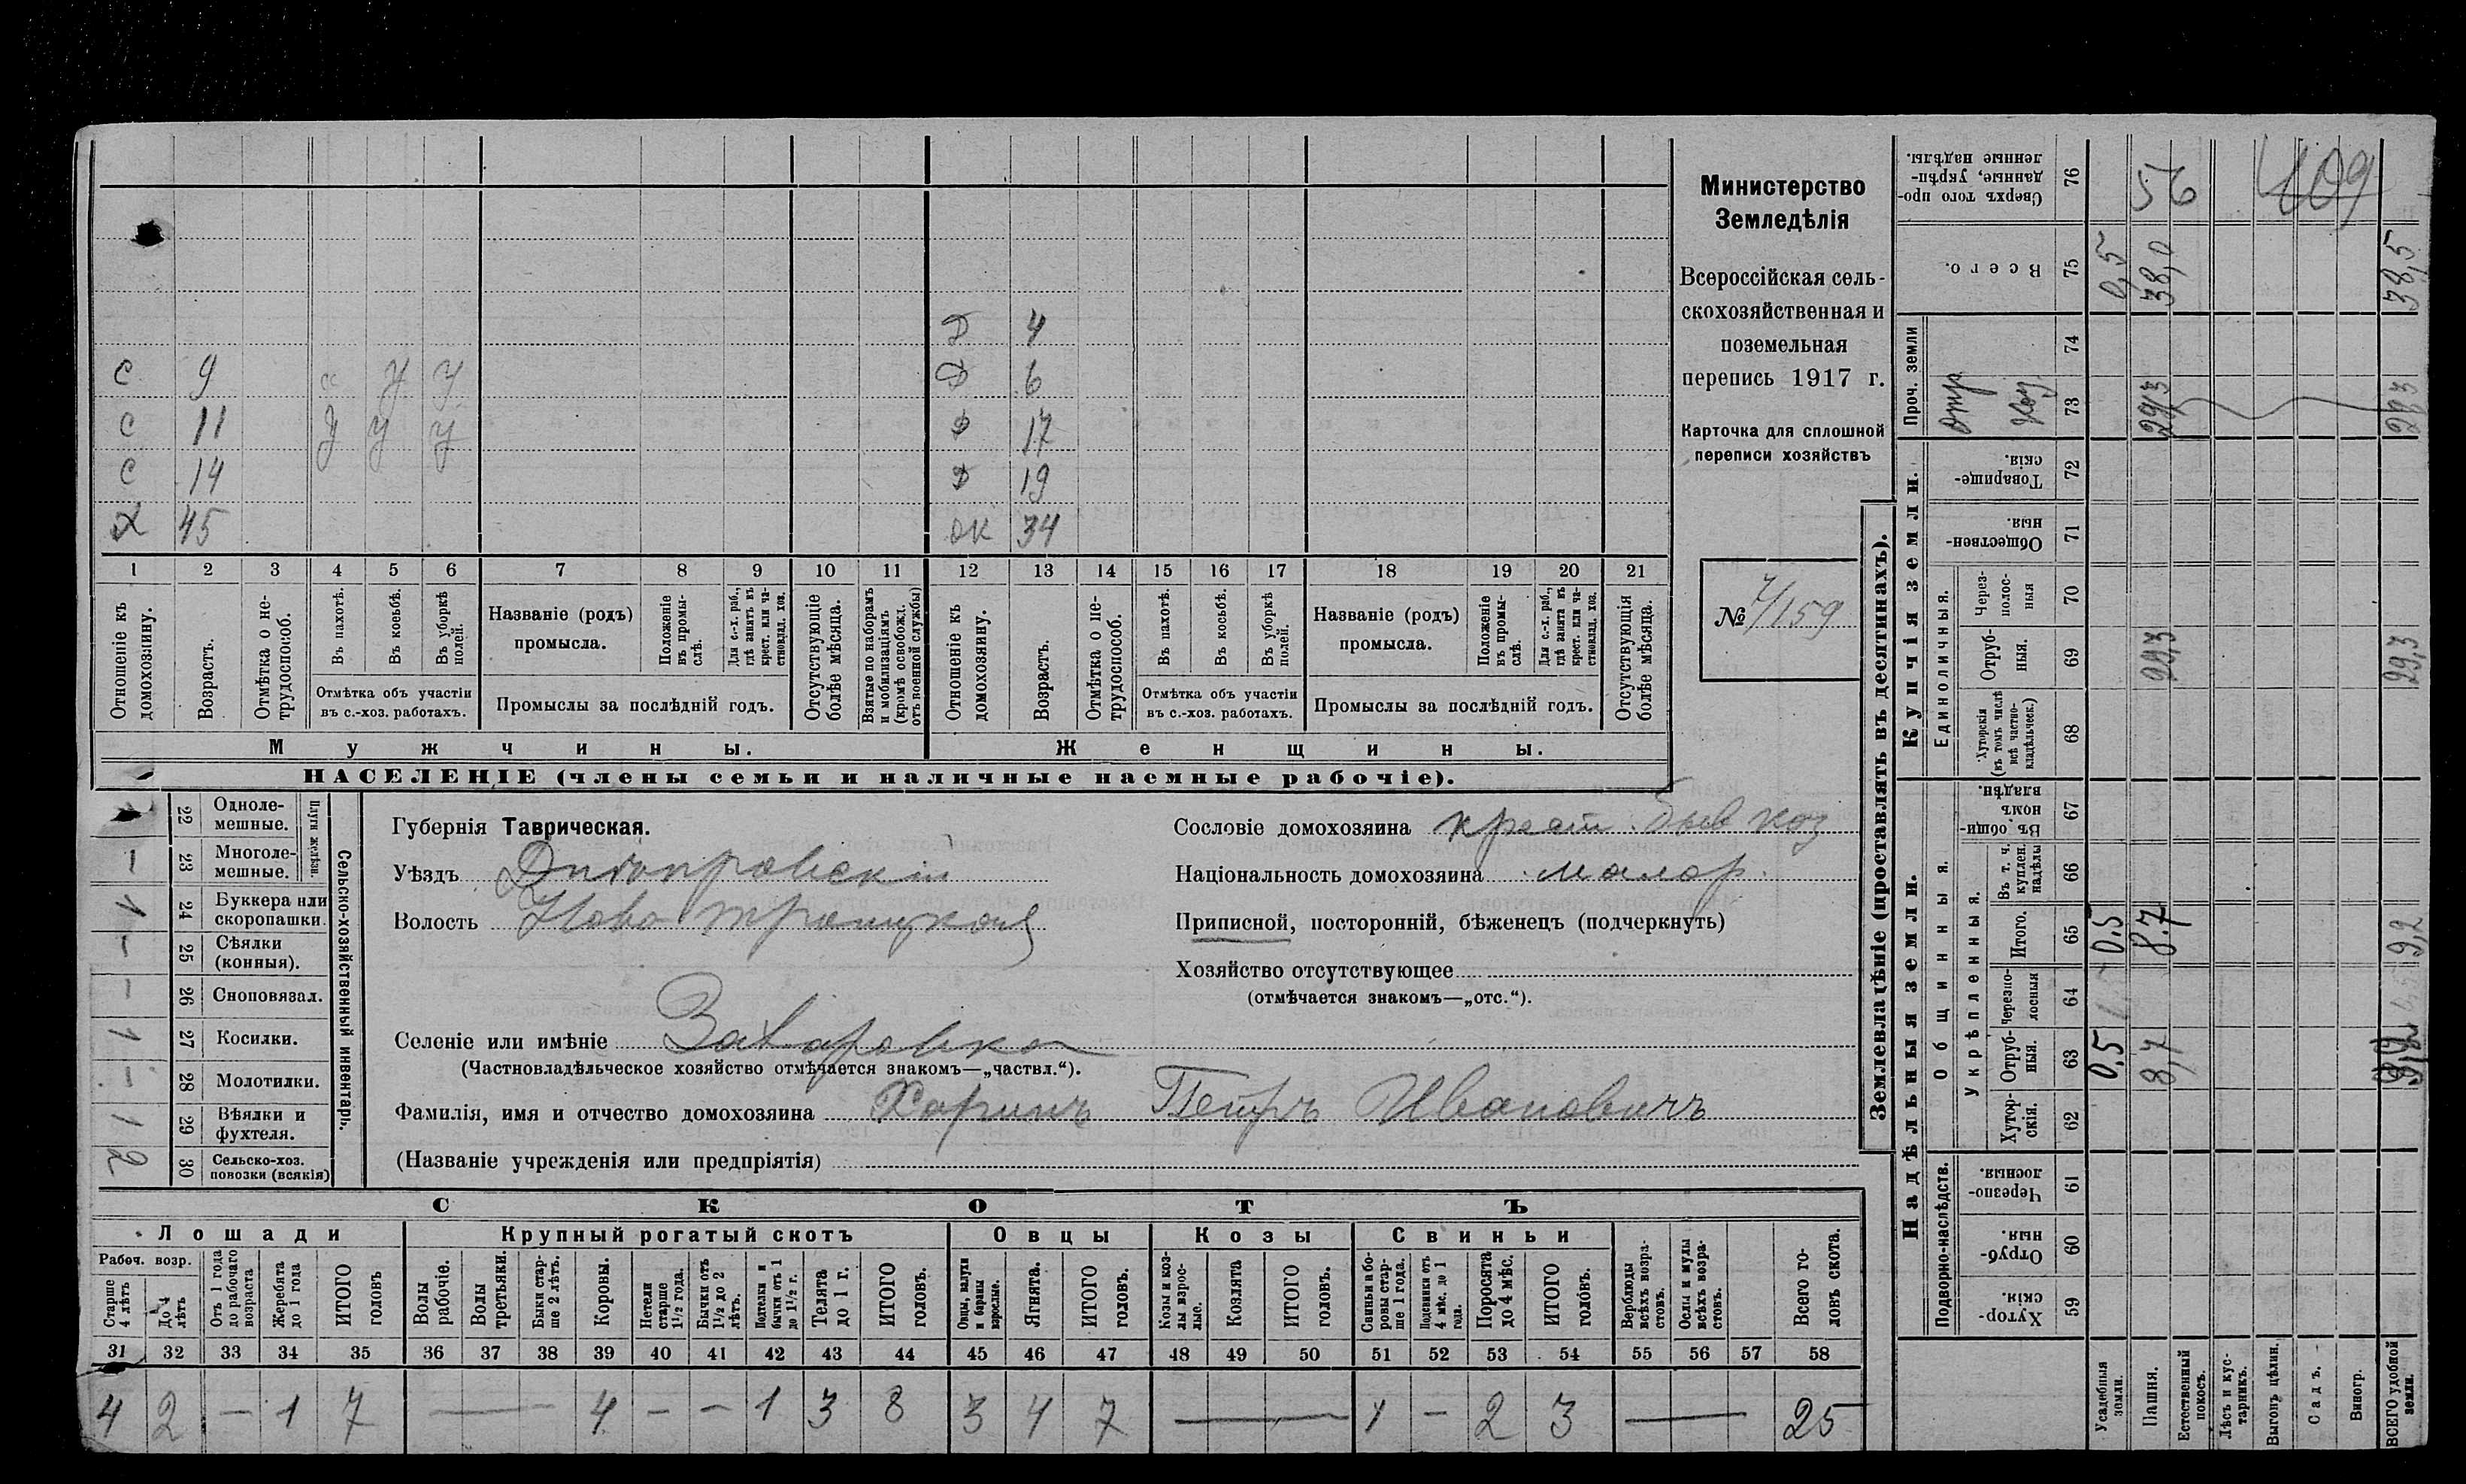 Министерство
Земледѣлія
Всероссійская сель-
скохозяйственная и
поземельная
перепись 1917 г.
Карточка для сплошной
переписи хозяйствъ
№ 7/159
Д 4
С 9 У У Д 6
С 11 У У У Д 17
С 14 Д 19
Х 45 ж 34
1 2 3 4 5 6 7 8 9 10 11 12 13 14 15 16 17 18 19 20 21
Отношеніе къ домохозяину.
Возрастъ.
Отмѣтка о не-трудоспособ.
Въ пахотѣ.
Въ косьбѣ.
Въ уборкѣ полей.
Отмѣтка объ участіи
въ с.-хоз. работахъ.
Названіе (родъ)
промысла.
Положеніе въ промы-слѣ.
Для с.-х. раб., гдѣ занятъ въ крест. или ча-стновлад. хоз.
Промыслы за послѣдній годъ.
Отсутствующіе болѣе мѣсяца.
Взятые по наборамъ и мобилизаціямъ (кромѣ освобожд. отъ военной службы)
Отношеніе къ домохозяину.
Возрастъ.
Отмѣтка о не-трудоспособ.
Въ пахотѣ.
Въ косьбѣ.
Въ уборкѣ полей.
Отмѣтка объ участіи
въ с.-хоз. работахъ.
Названіе (родъ)
промысла.
Положеніе въ промы-слѣ.
Для с.-х. раб., гдѣ занята въ крест. или ча-стновлад. хоз.
Промыслы за послѣдній годъ.
Отсутствующія болѣе мѣсяца.
Мужчины. Женщины.
НАСЕЛЕНІЕ (члены семьи и наличные наемные рабочіе).
Сельско-хозяйственный инвентарь.
Плуги желѣзн.
22 Одноле-мешные.
— 23 Многоле-мешные.
1 24 Буккера или скоропашки.
— 25 Сѣялки (конныя).
— 26 Сноповязал.
1 27 Косилки.
— 28 Молотилки.
1 29 Вѣялки и фухтеля.
2 30 Сельско-хоз. повозки (всякія)
Губернія Таврическая.
Уѣздъ Днѣпровскій
Волость Ново-Троицкой
Селеніе или имѣніе Захаровка
(Частновладѣльческое хозяйство отмѣчается знакомъ—„частвл.“).
Фамилія, имя и отчество домохозяина Харинъ Петръ Ивановичъ
(Названіе учрежденія или предпріятія)
Сословіе домохозяина крест. быв каз
Національность домохозяина малор.
Приписной, посторонній, бѣженецъ (подчеркнуть)
Хозяйство отсутствующее
(отмѣчается знакомъ—„отс.“).
СКОТЪ
Лошади Крупный рогатый скотъ Овцы Козы Свиньи
Рабоч. возр.
Старше 4 лѣтъ
До 4 лѣтъ
Отъ 1 года до рабочаго возраста
Жеребята до 1 года
ИТОГО головъ
Волы рабочіе.
Волы третьяки.
Быки стар-ше 2 лѣтъ.
Коровы.
Нетели старше 1½ года.
Бычки отъ 1½ до 2 лѣтъ.
Подтелки и бычки отъ 1 до 1½ г.
Телята до 1 г.
ИТОГО головъ.
Овцы, валухи и бараны взрослые.
Ягнята.
ИТОГО головъ.
Козы и коз-лы взрос-лые.
Козлята
ИТОГО головъ.
Свиньи и бо-ровы стар-ше 1 года.
Подсвинки отъ 4 мѣс. до 1 года.
Поросята до 4 мѣс.
ИТОГО головъ.
Верблюды всѣхъ возра-стовъ.
Ослы и мулы всѣхъ возра-стовъ.
Всего го-ловъ скота.
31 32 33 34 35 36 37 38 39 40 41 42 43 44 45 46 47 48 49 50 51 52 53 54 55 56 57 58
4 2 — 1 7 — 4 — — 1 3 8 3 4 7 — 1 — 2 3 — 25
Землевладѣніе (проставлять въ десятинахъ).
Надѣльныя земли. Купчія земли. Проч. земли
Подворно-наслѣдств.
Общинныя.
Укрѣпленныя.
Единоличныя.
Хутор-скія. 59
Отруб-ныя. 60
Черезпо-лосныя. 61
Хутор-скія. 62
Отруб-ныя. 63 0,5 8,7
Черезпо-лосныя 64
Итого. 65 0,5 8,7 9,2
Въ т. ч. куплен. надѣлы 66
Въ общин-номъ владѣн. 67
Хуторскія (въ томъ числѣ всѣ частно-владѣльческ.) 68
Отруб-ныя. 69 29,3 29,3
Через-полос-ныя 70
Обществен-ныя. 71
Товарище-скія. 72
73 29,3 29,3
74
Всего. 75 0,5 38,0 38,5
Сверхъ того про-данные, укрѣп-ленные надѣлы. 76 56 109
Усадебныя земли.
Пашня.
Естественный покосъ.
Лѣсъ и кус-тарникъ.
Выгонъ цѣлин.
Садъ.
Виногр.
ВСЕГО удобной земли.